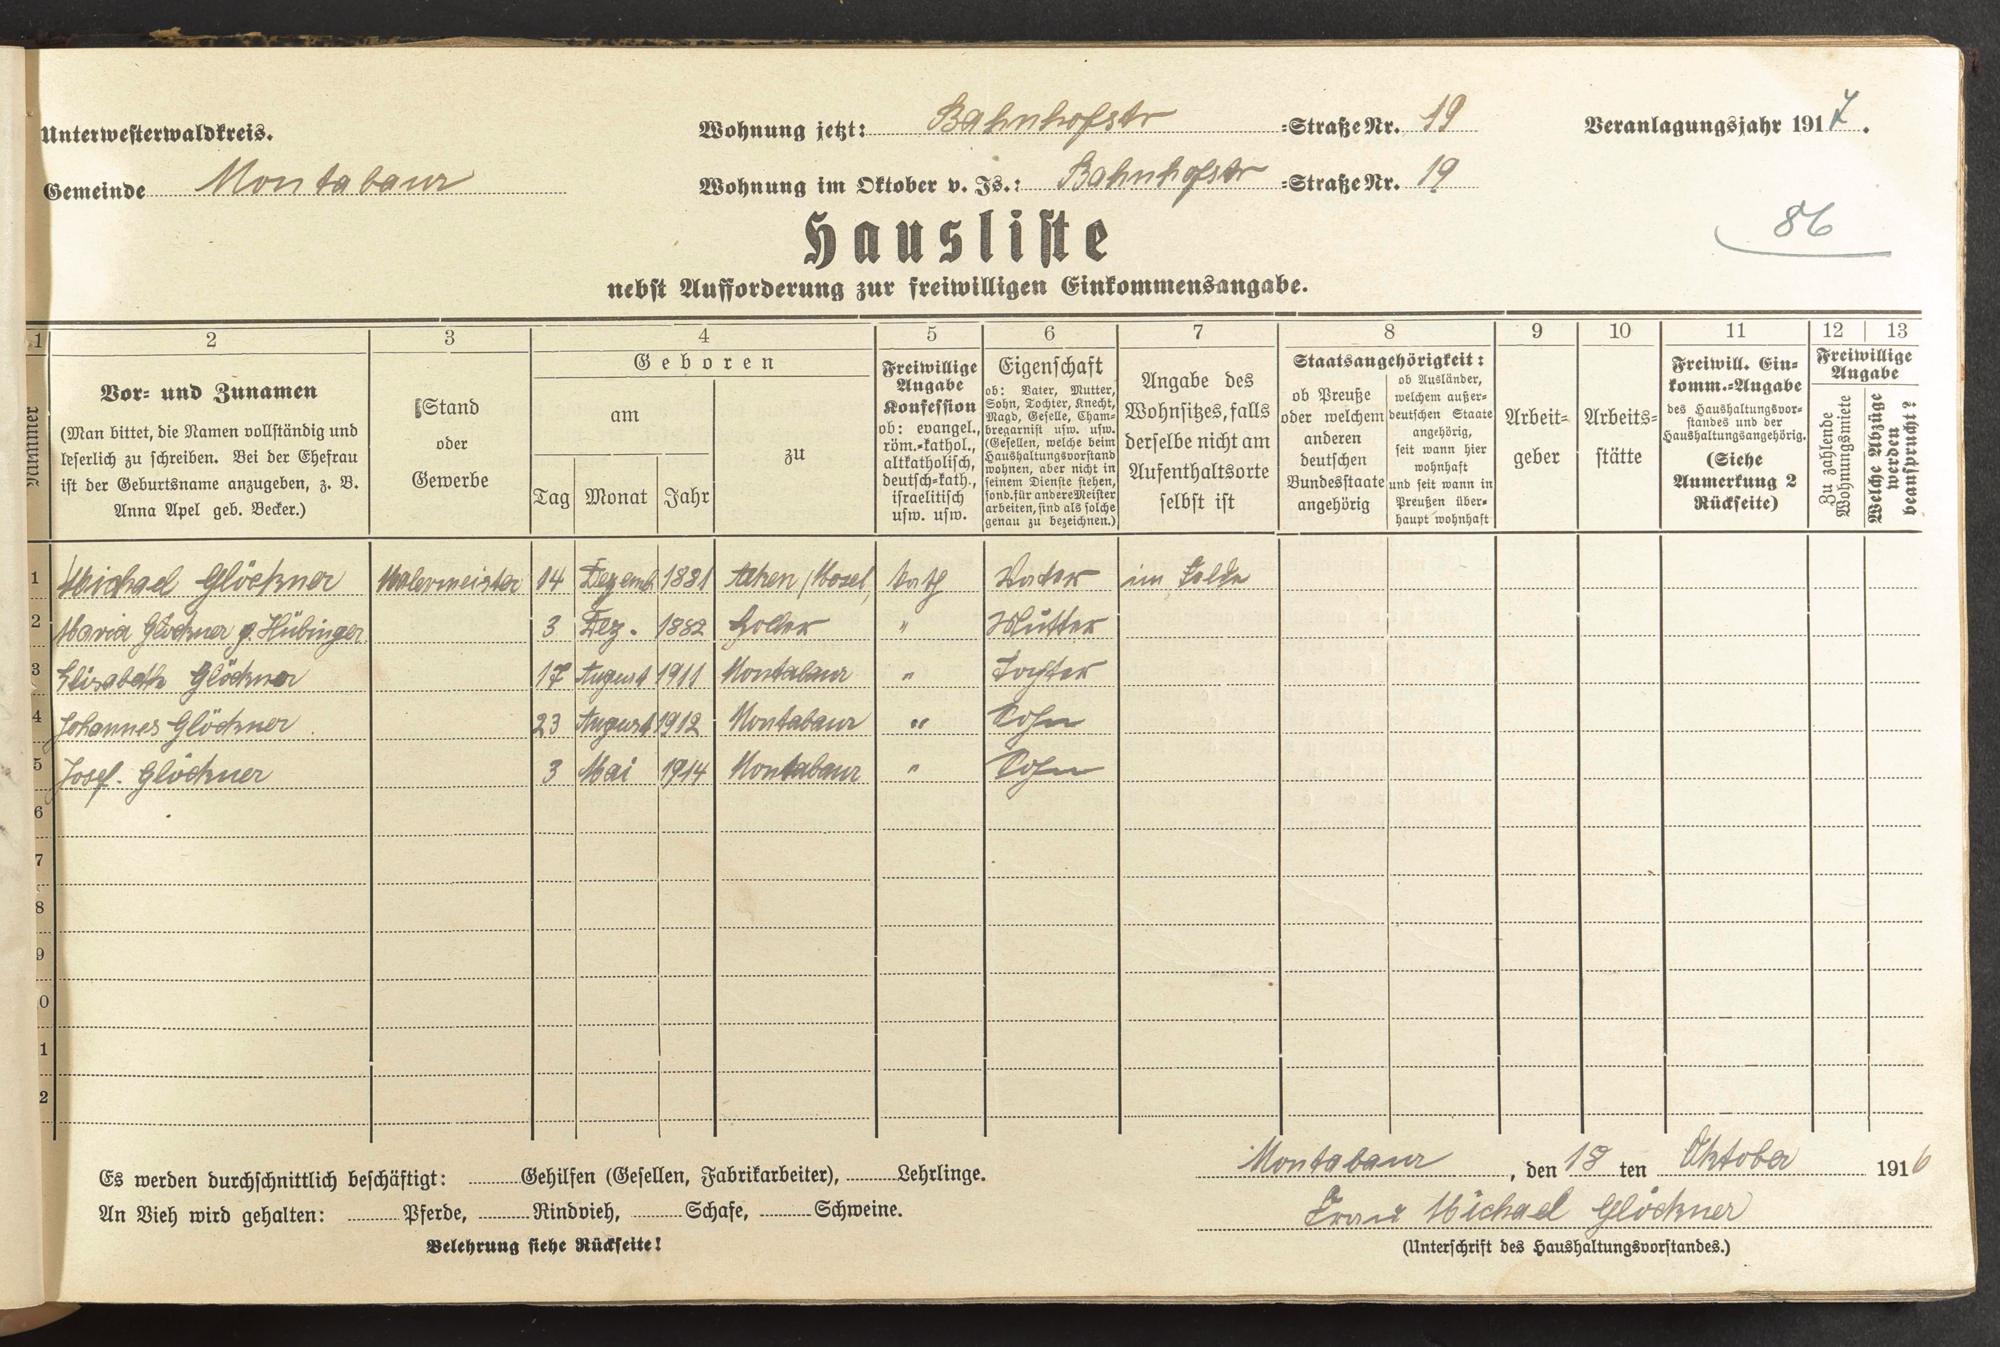 Unterwesterwaldkreis.
Wohnung jetzt: Bahnhofstr =Straße Nr. 19
Veranlagungsjahr 1917.
Gemeinde Montabaur
Wohnung im Oktober v. Js.: Bahnhofstr =Straße Nr. 19
86
Hausliste
nebst Aufforderung zur freiwilligen Einkommensangabe.
1 2 3 4 5 6 7 8 9 10 11 12 13
Nummer
Vor- und Zunamen
(Man bittet, die Namen vollständig und
leserlich zu schreiben. Bei der Ehefrau
ist der Geburtsname anzugeben, z. B.
Anna Apel geb. Becker.)
Stand
oder
Gewerbe
Geboren
am
Tag Monat Jahr
zu
Freiwillige
Angabe
Konfession
ob: evangel.,
röm.-kathol.,
altkatholisch,
deutsch-kath.,
israelitisch
usw. usw.
Eigenschaft
ob: Vater, Mutter,
Sohn, Tochter, Knecht,
Magd, Geselle, Cham-
bregarnist usw. usw.
(Gesellen, welche beim
Haushaltungsvorstand
wohnen, aber nicht in
seinem Dienste stehen,
sond. für andere Meister
arbeiten, sind als solche
genau zu bezeichnen.)
Angabe des
Wohnsitzes, falls
derselbe nicht am
Aufenthaltsorte
selbst ist
Staatsangehörigkeit:
ob Preuße
oder welchem
anderen
deutschen
Bundesstaate
angehörig
ob Ausländer,
welchem außer-
deutschen Staate
angehörig,
seit wann hier
wohnhaft
und seit wann in
Preußen über-
haupt wohnhaft
Arbeit-
geber
Arbeits-
stätte
Freiwill. Ein-
komm.-Angabe
des Haushaltungsvor-
standes und der
Haushaltungsangehörig.
(Siehe
Anmerkung 2
Rückseite)
Freiwillige
Angabe
Zu zahlende
Wohnungsmiete
Welche Abzüge
werden
beansprucht?
1 Michael Glöckner Malermeister 14 Dezemb 1881 Alken / Mosel, Kath Vater im Felde
2 Maria Glöckner g. Hübinger 3 Dez. 1882 Holler " Mutter
3 Elisabeth Glöckner 17 August 1911 Montabaur " Tochter
4 Johannes Glöckner 23 August 1912 Montabaur " Sohn
5 Josef. Glöckner 3 Mai 1914 Montabaur " Sohn
6
7
8
9
0
1
2
Es werden durchschnittlich beschäftigt: Gehilfen (Gesellen, Fabrikarbeiter), Lehrlinge.
An Vieh wird gehalten: Pferde, Rindvieh, Schafe, Schweine.
Belehrung siehe Rückseite!
Montabaur, den 18 ten Oktober 1916
Frau Michael Glöckner
(Unterschrift des Haushaltungsvorstandes.)